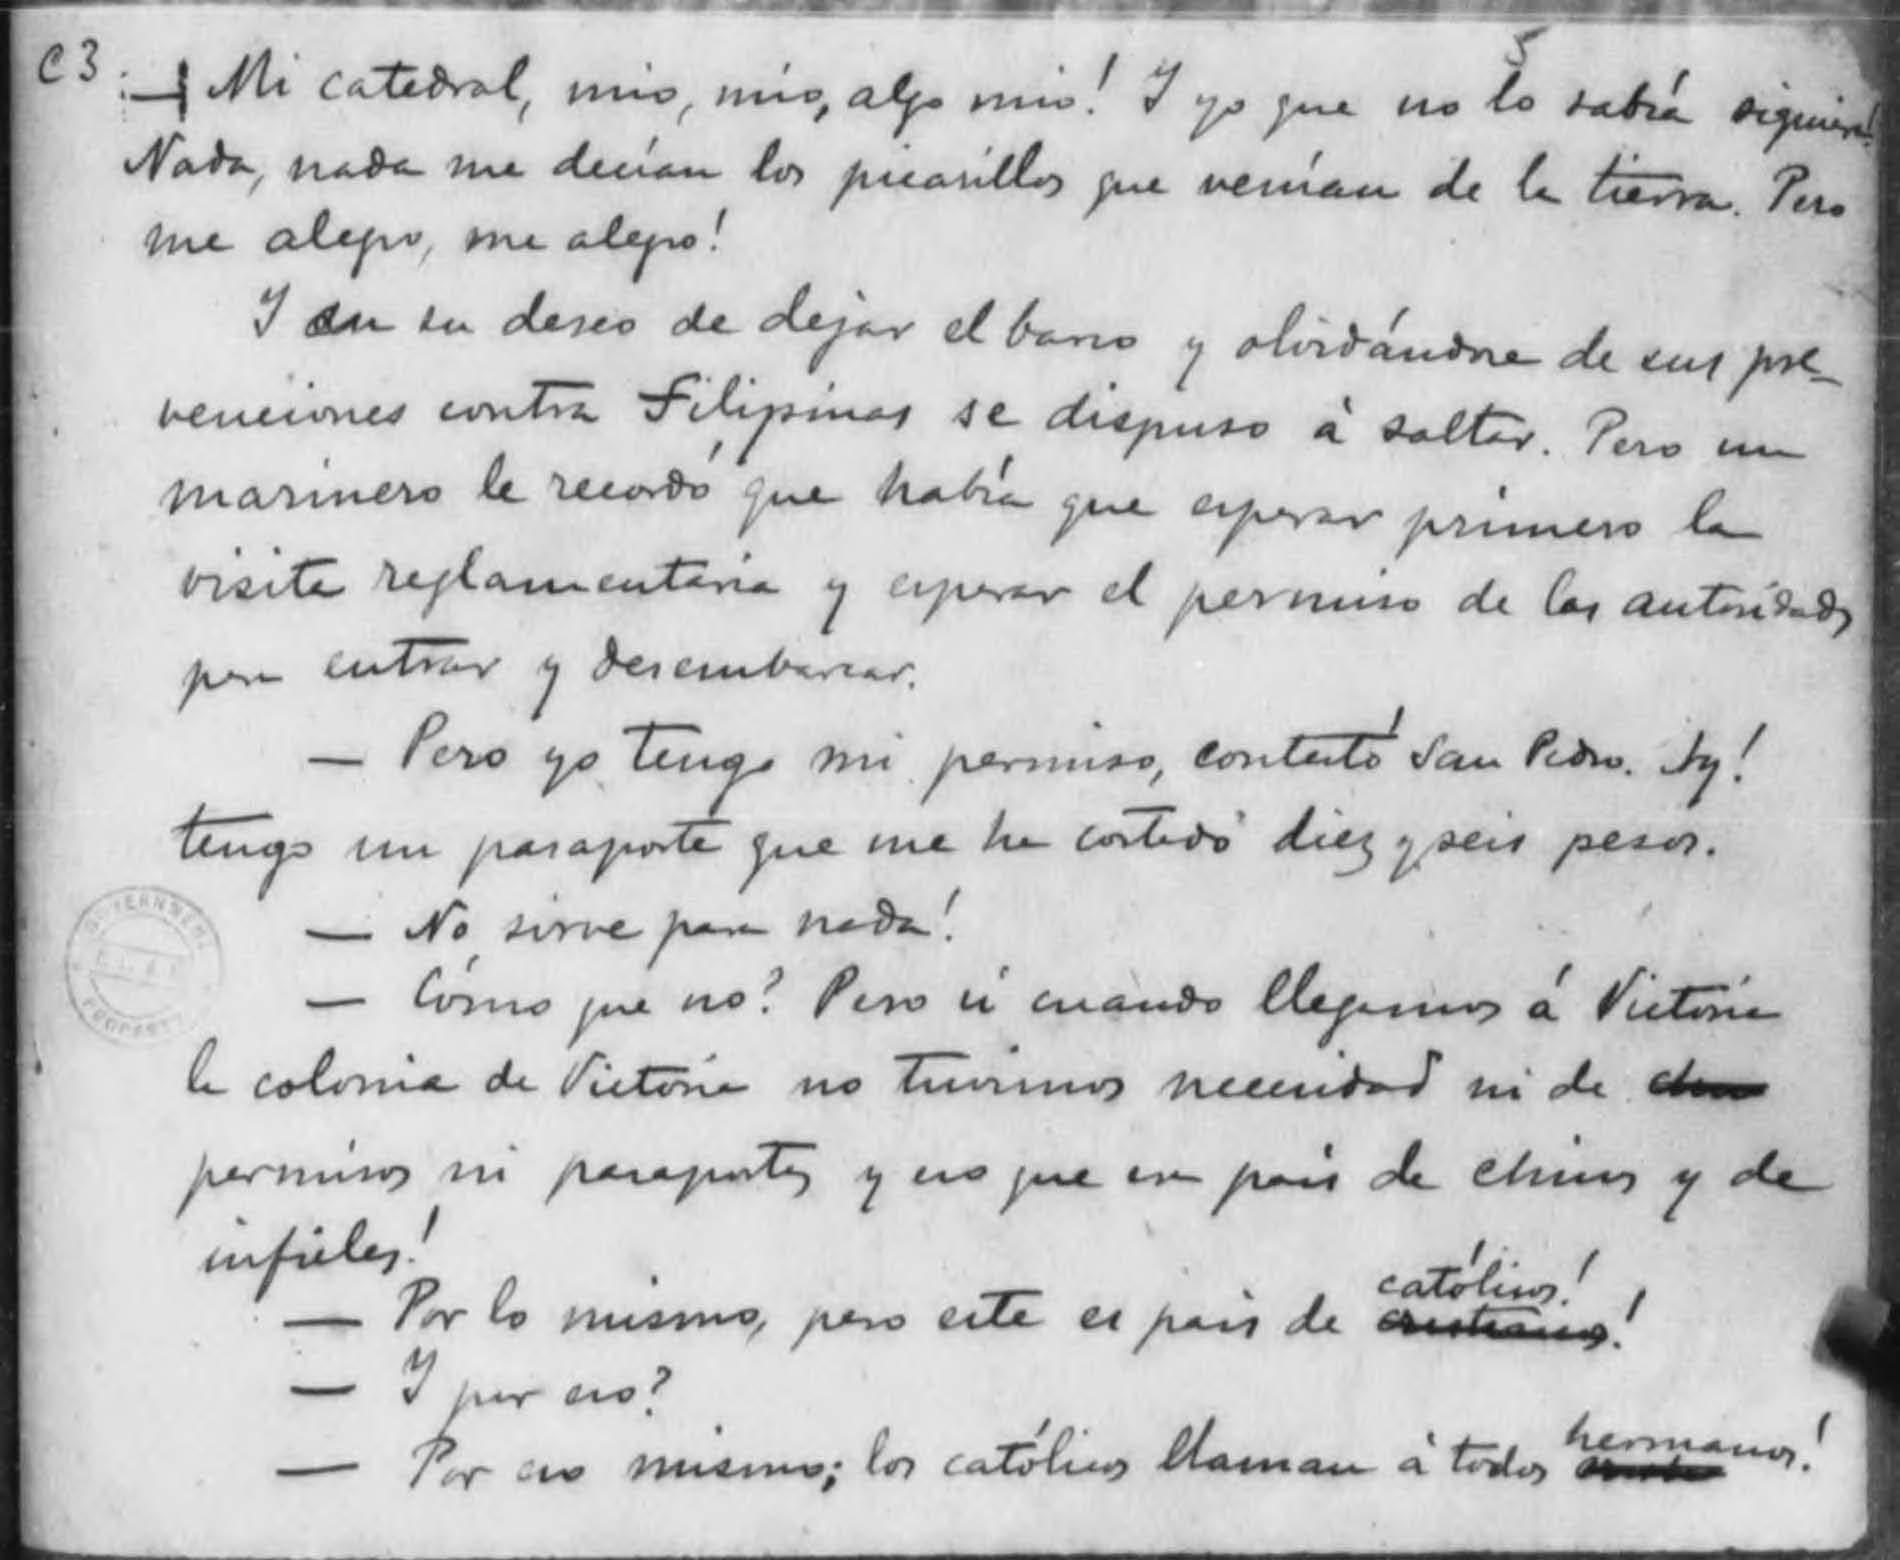 C3
5
— ¡Mi catedral, mio, mio, algo mio! I yo que no lo sabía siquiera!
Nada, nada me decían los picarillos que venían de la tierra. Pero
me alegro, me alegro!
I en su deseo de dejar el barco y olvidándose de sus pre-
venciones contra Filipinas se dispuso á saltar. Pero un
marinero le recordó que había que esperar primero la
visita reglamentaria y esperar el permiso de las autoridades
para entrar y desembarcar.
— Pero yo tengo mi permiso, contestó San Pedro. Ay!
tengo un pasaporte que me ha costado diez y seis pesos.
— No sirve para nada!
— Cómo que no? Pero si cuando llegamos á Victoria
la colonia de Victoria no tuvimos necesidad ni de
permisos ni pasaportes y eso que era país de chinos y de
infieles!
católicos!
— Por lo mismo, pero este es país de cristianos!
— I por eso?
hermanos!
— Por eso mismo; los católicos llaman á todos
GOVERNMENT
PROPERTY